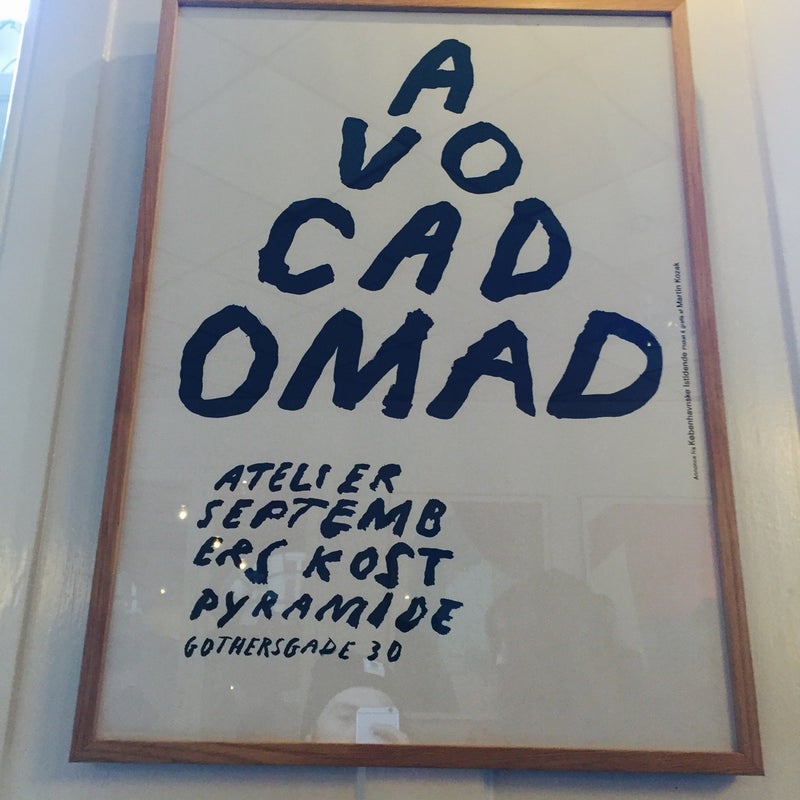 A
VO
CAD
OMAD
ATELIER
SEPTEMB
ERS KOST
PYRAMIDE
GOTHERSGADE 30
Annonce fra Københavnske Istidende Plakat & grafik af Martin Kozak